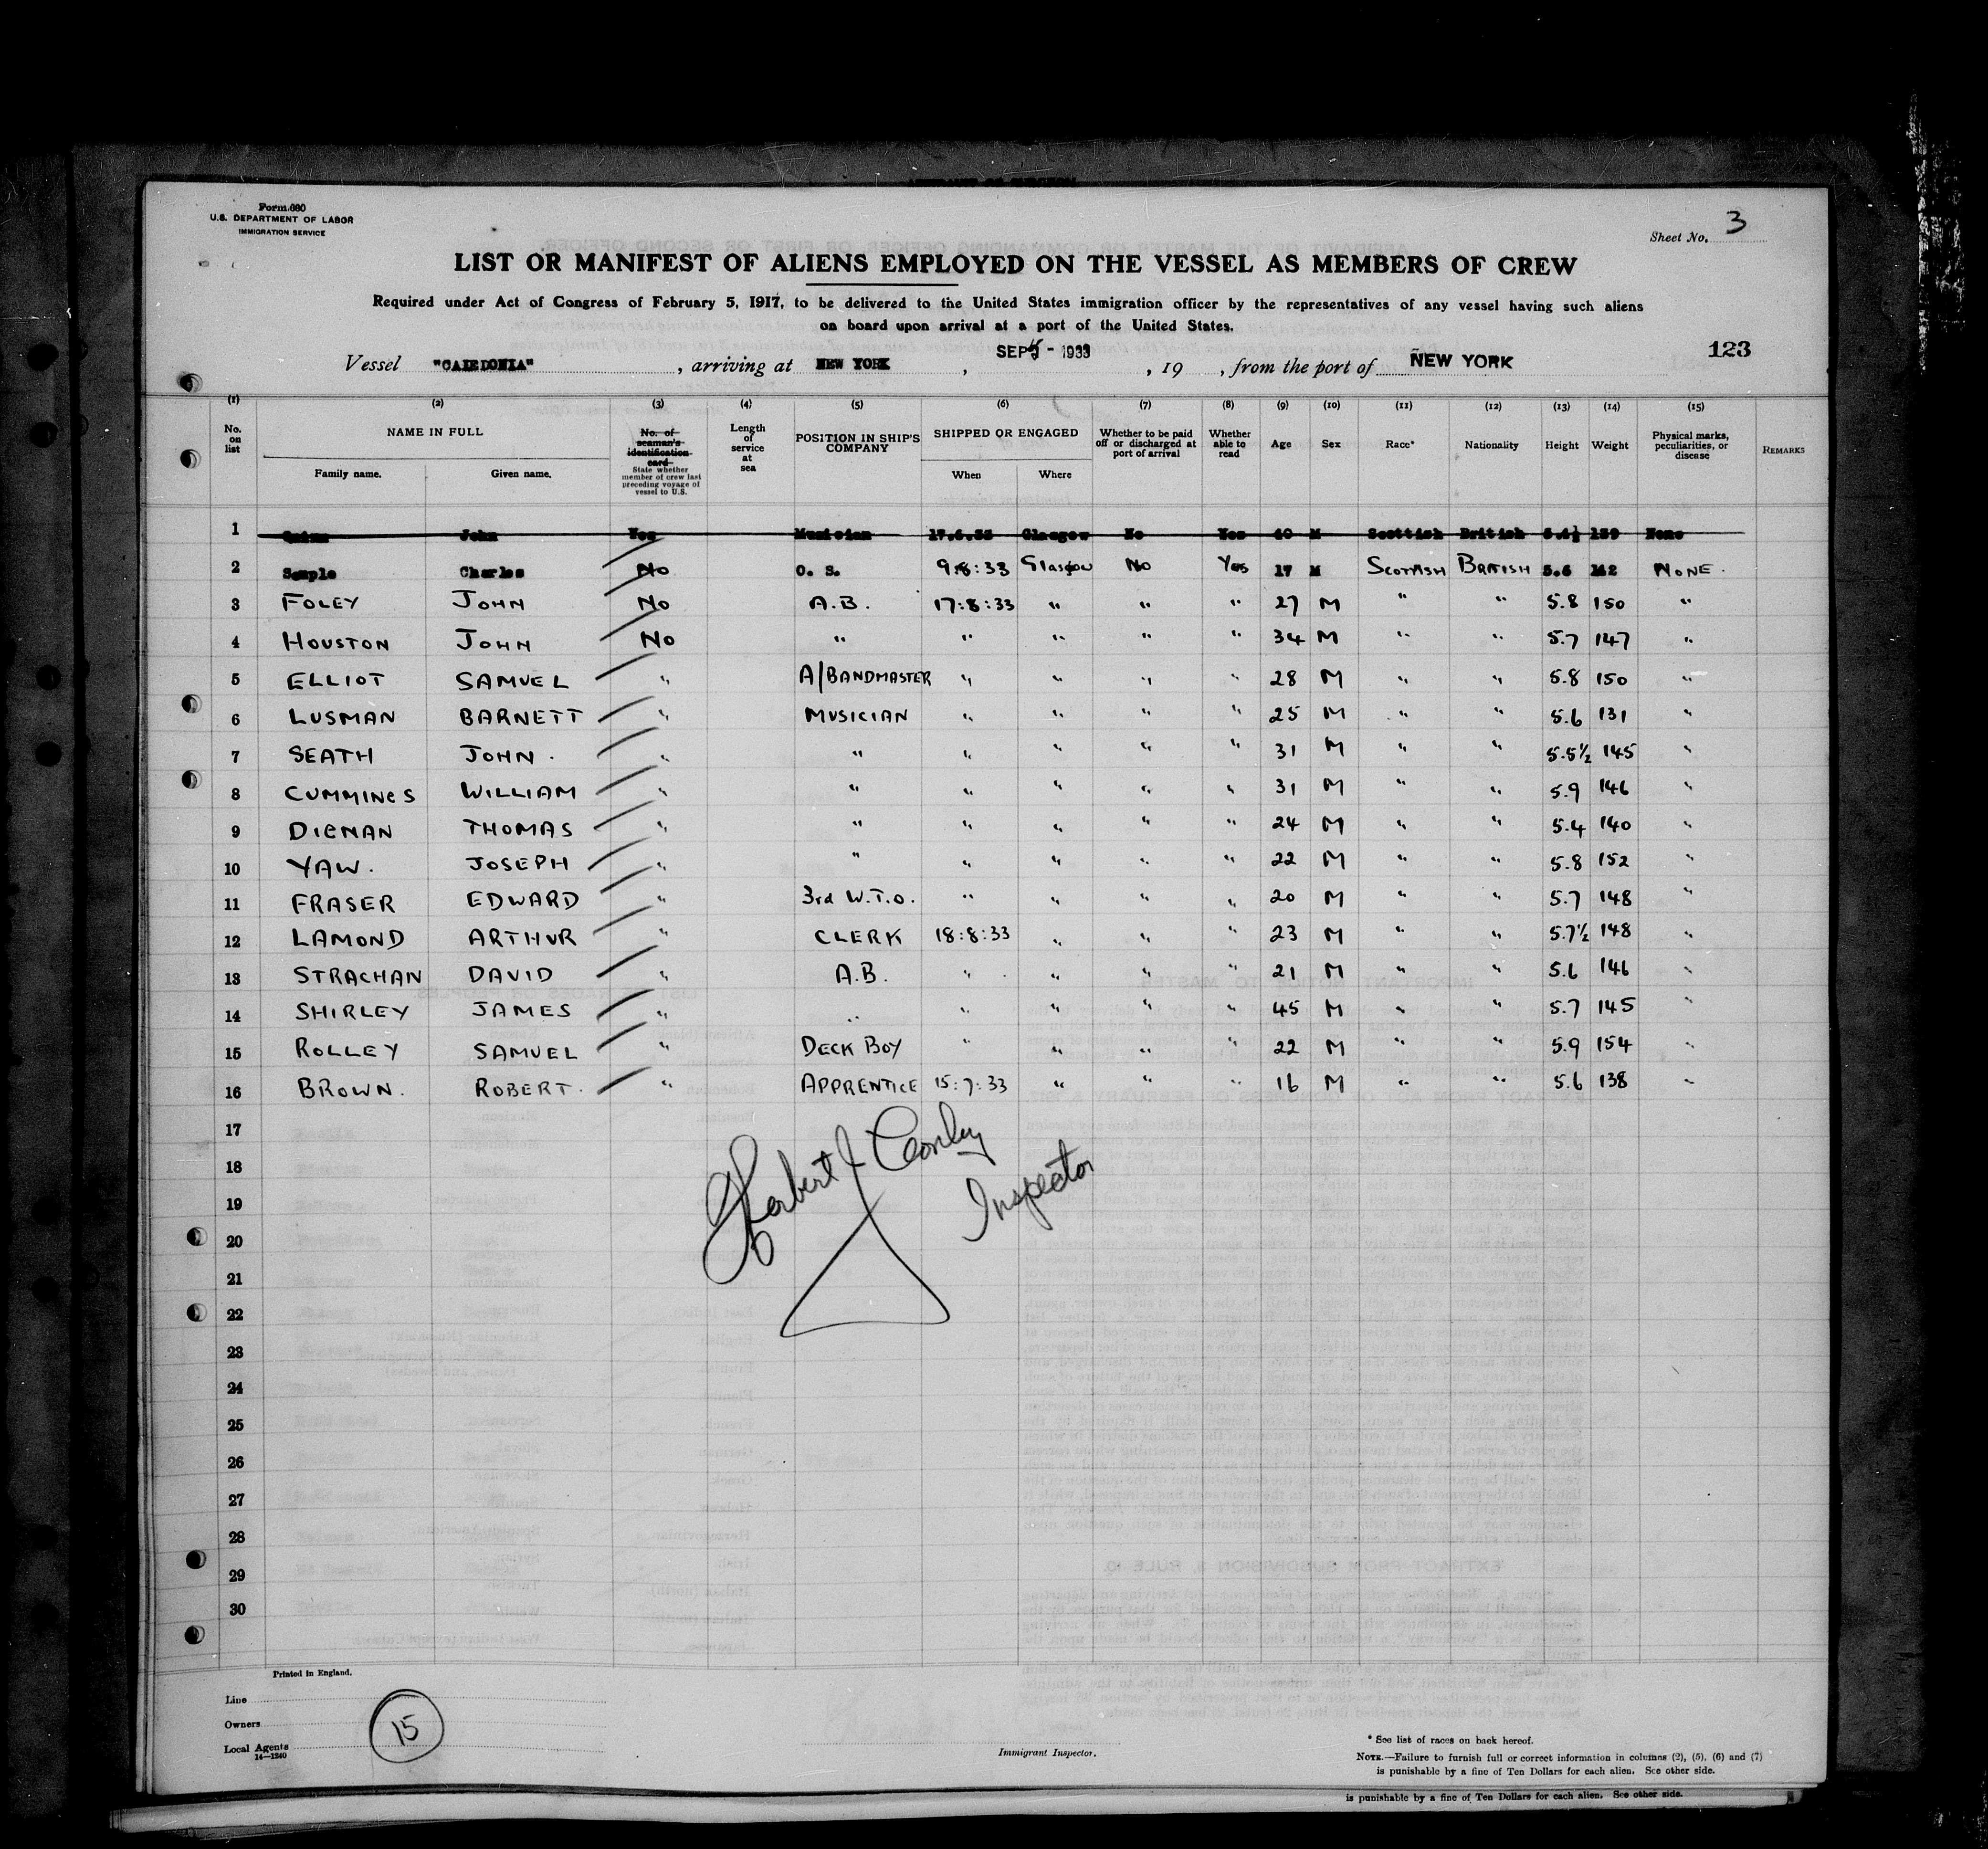 Form 680
U.S. DEPARTMENT OF LABOR
IMMIGRATION SERVICE
Sheet No. 3
LIST OR MANIFEST OF ALIENS EMPLOYED ON THE VESSEL AS MEMBERS OF CREW
Required under Act of Congress of February 5, 1917, to be delivered to the United States immigration officer by the representatives of any vessel having such aliens
on board upon arrival at a port of the United States.
Vessel "CALEDONIA", arriving at NEW YORK, SEP 5 - 1933, 19 , from the port of NEW YORK
123
(1) (2) (3) (4) (5) (6) (7) (8) (9) (10) (11) (12) (13) (14) (15)
No. on list NAME IN FULL Family name. Given name. No. of seaman's identification card State whether member of crew last preceding voyage of vessel to U.S. Length of service at sea POSITION IN SHIP'S COMPANY SHIPPED OR ENGAGED When Where Whether to be paid off or discharged at port of arrival Whether able to read Age Sex Race* Nationality Height Weight Physical marks, peculiarities, or disease REMARKS
1 Quinn John Yes Musician 17.6.33 Glasgow No Yes 40 M Scottish British 5.4½ 139 None
2 Semple Charles No O. S. 9:8:33 Glasgow No Yes 17 M SCOTTISH BRITISH 5.6 142 NONE.
3 FOLEY JOHN No A.B. 17:8:33 " " " 27 M " " 5.8 150 "
4 HOUSTON JOHN No " " " " " 34 M " " 5.7 147 "
5 ELLIOT SAMUEL " A/BANDMASTER " " " " 28 M " " 5.8 150 "
6 LUSMAN BARNETT " MUSICIAN " " " " 25 M " " 5.6 131 "
7 SEATH JOHN. " " " " " " 31 M " " 5.5½ 145 "
8 CUMMINGS WILLIAM " " " " " " 31 M " " 5.9 146 "
9 DIGNAN THOMAS " " " " " " 24 M " " 5.4 140 "
10 YAW. JOSEPH " " " " " " 22 M " " 5.8 152 "
11 FRASER EDWARD " 3rd W.T.O. " " " " 20 M " " 5.7 148 "
12 LAMOND ARTHUR " CLERK 18:8:33 " " " 23 M " " 5.7½ 148 "
13 STRACHAN DAVID " A.B. " " " " 21 M " " 5.6 146 "
14 SHIRLEY JAMES " " " " " " 45 M " " 5.7 145 "
15 ROLLEY SAMUEL " DECK BOY " " " " 22 M " " 5.9 154 "
16 BROWN. ROBERT. " APPRENTICE 15:7:33 " " " 16 M " " 5.6 138 "
17
Herbert J Conley
18
Inspector
19
20
21
22
23
24
25
26
27
28
29
30
Printed in England.
Line
Owners
Local Agents
14—1240
15
Immigrant Inspector.
* See list of races on back hereof.
NOTE.—Failure to furnish full or correct information in columns (2), (5), (6) and (7)
is punishable by a fine of Ten Dollars for each alien. See other side.
is punishable by a fine of Ten Dollars for each alien. See other side.